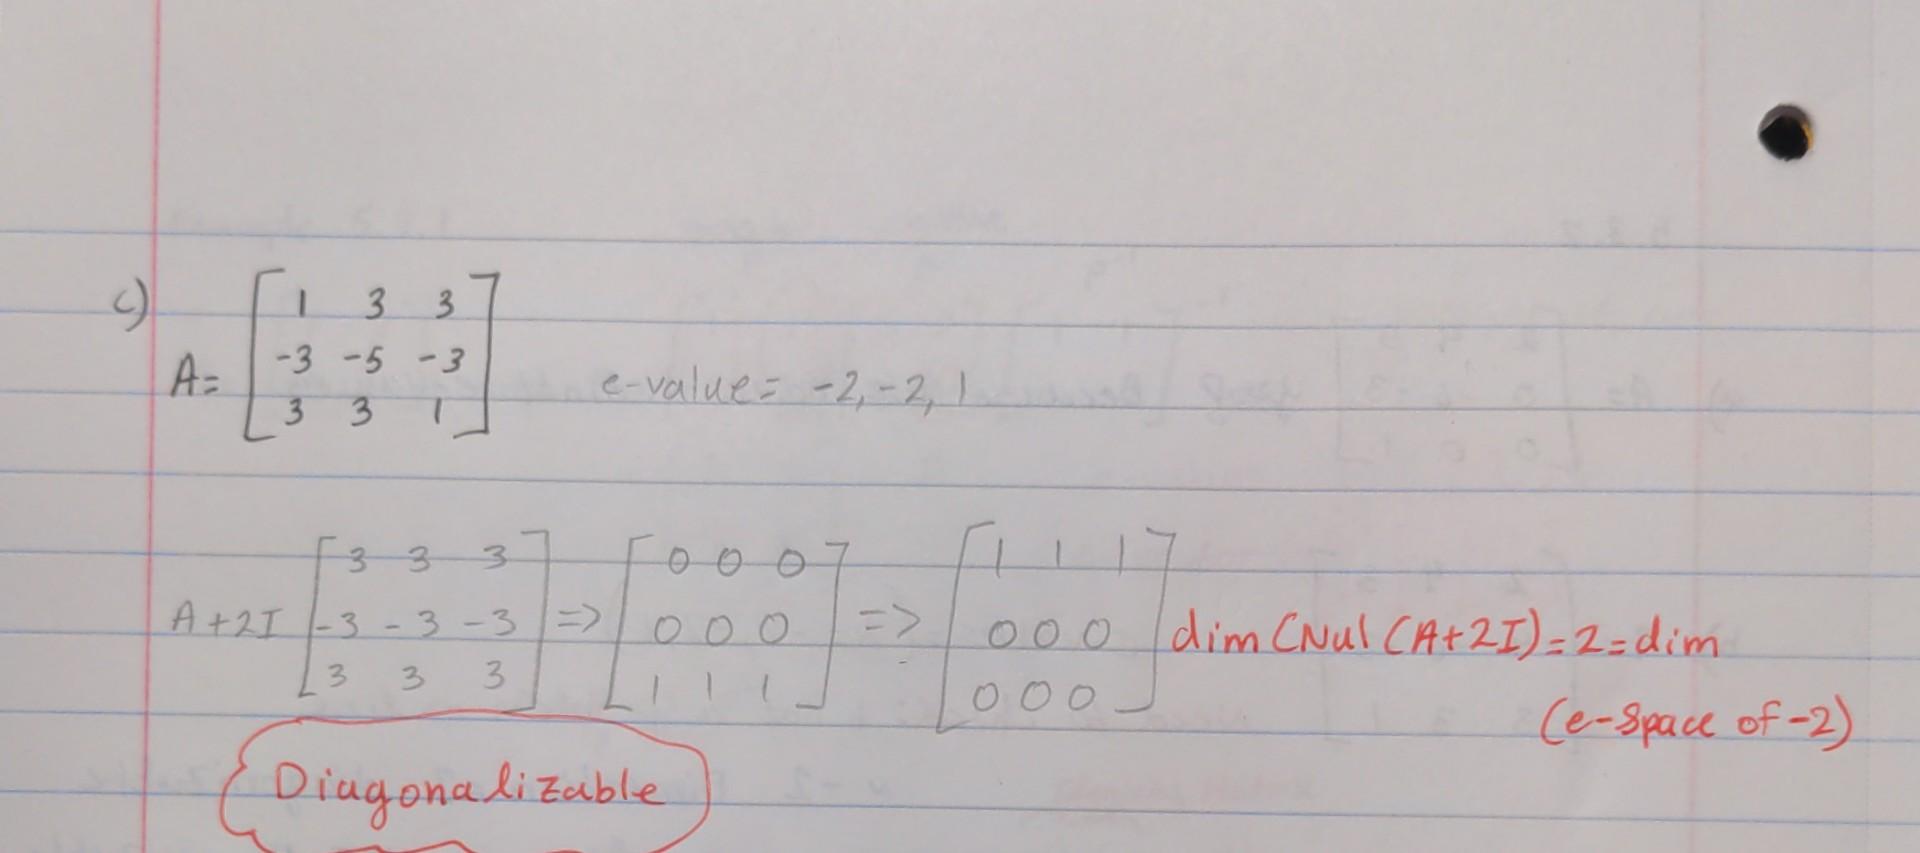 c)
A= [ 1 3 3
-3 -5 -3
3 3 1 ] e-value= -2, -2, 1
A+2I [ 3 3 3
-3 -3 -3
3 3 3 ] => [ 0 0 0
0 0 0
1 1 1 ] => [ 1 1 1
0 0 0
0 0 0 ] dim (Nul (A+2I)=2=dim
(e-space of -2)
Diagonalizable